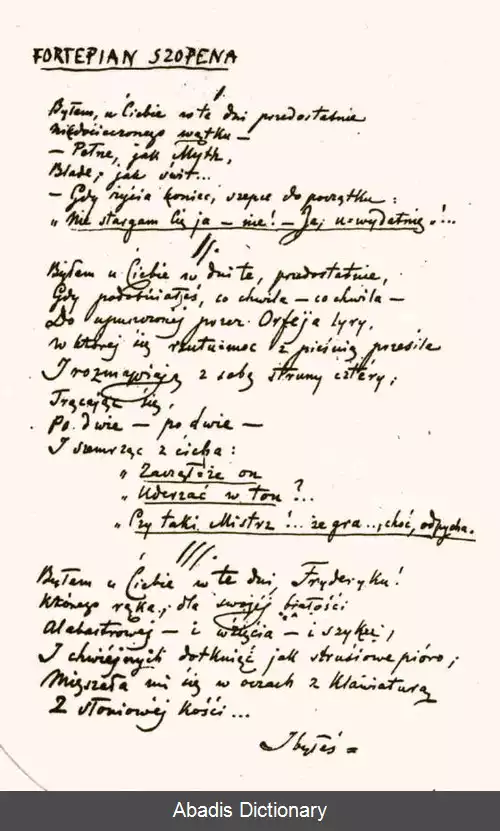 FORTEPIAN SZOPENA
I.
Byłem u Ciebie w te dni przedostatnie
Niedocieczonego wątku —
— Pełne, jak Myth,
Blade, jak świt...
— Gdy życia koniec szepce do początku:
„Nie stargam Cię ja — nie! — Ja, u-wydatnię!...
II.
Byłem u Ciebie w dni te, przedostatnie,
Gdy podobniałeś, co chwila — co chwila —
Do upuszczonej przez Orfeja lyry,
W której się rzutu-moc z pieśnią przesila
I rozmawiają z sobą struny cztéry,
Trącając się,
Po dwie — po dwie —
I szemrząc z cicha:
„Zacząłże on
„Uderzać w ton?...
„Czy taki Mistrz!... że gra.., choć, odpycha.
III.
Byłem u Ciebie w te dni, Fryderyku!
Którego ręka, dla swojéj białości
Alabastrowéj — i wzięcia — i szyku,
I chwiejnych dotknięć jak strusiowe pióro;
Mięszała mi się w oczach z klawiaturą
Z słoniowéj kości...
I byłeś =
Abadis Dictionary